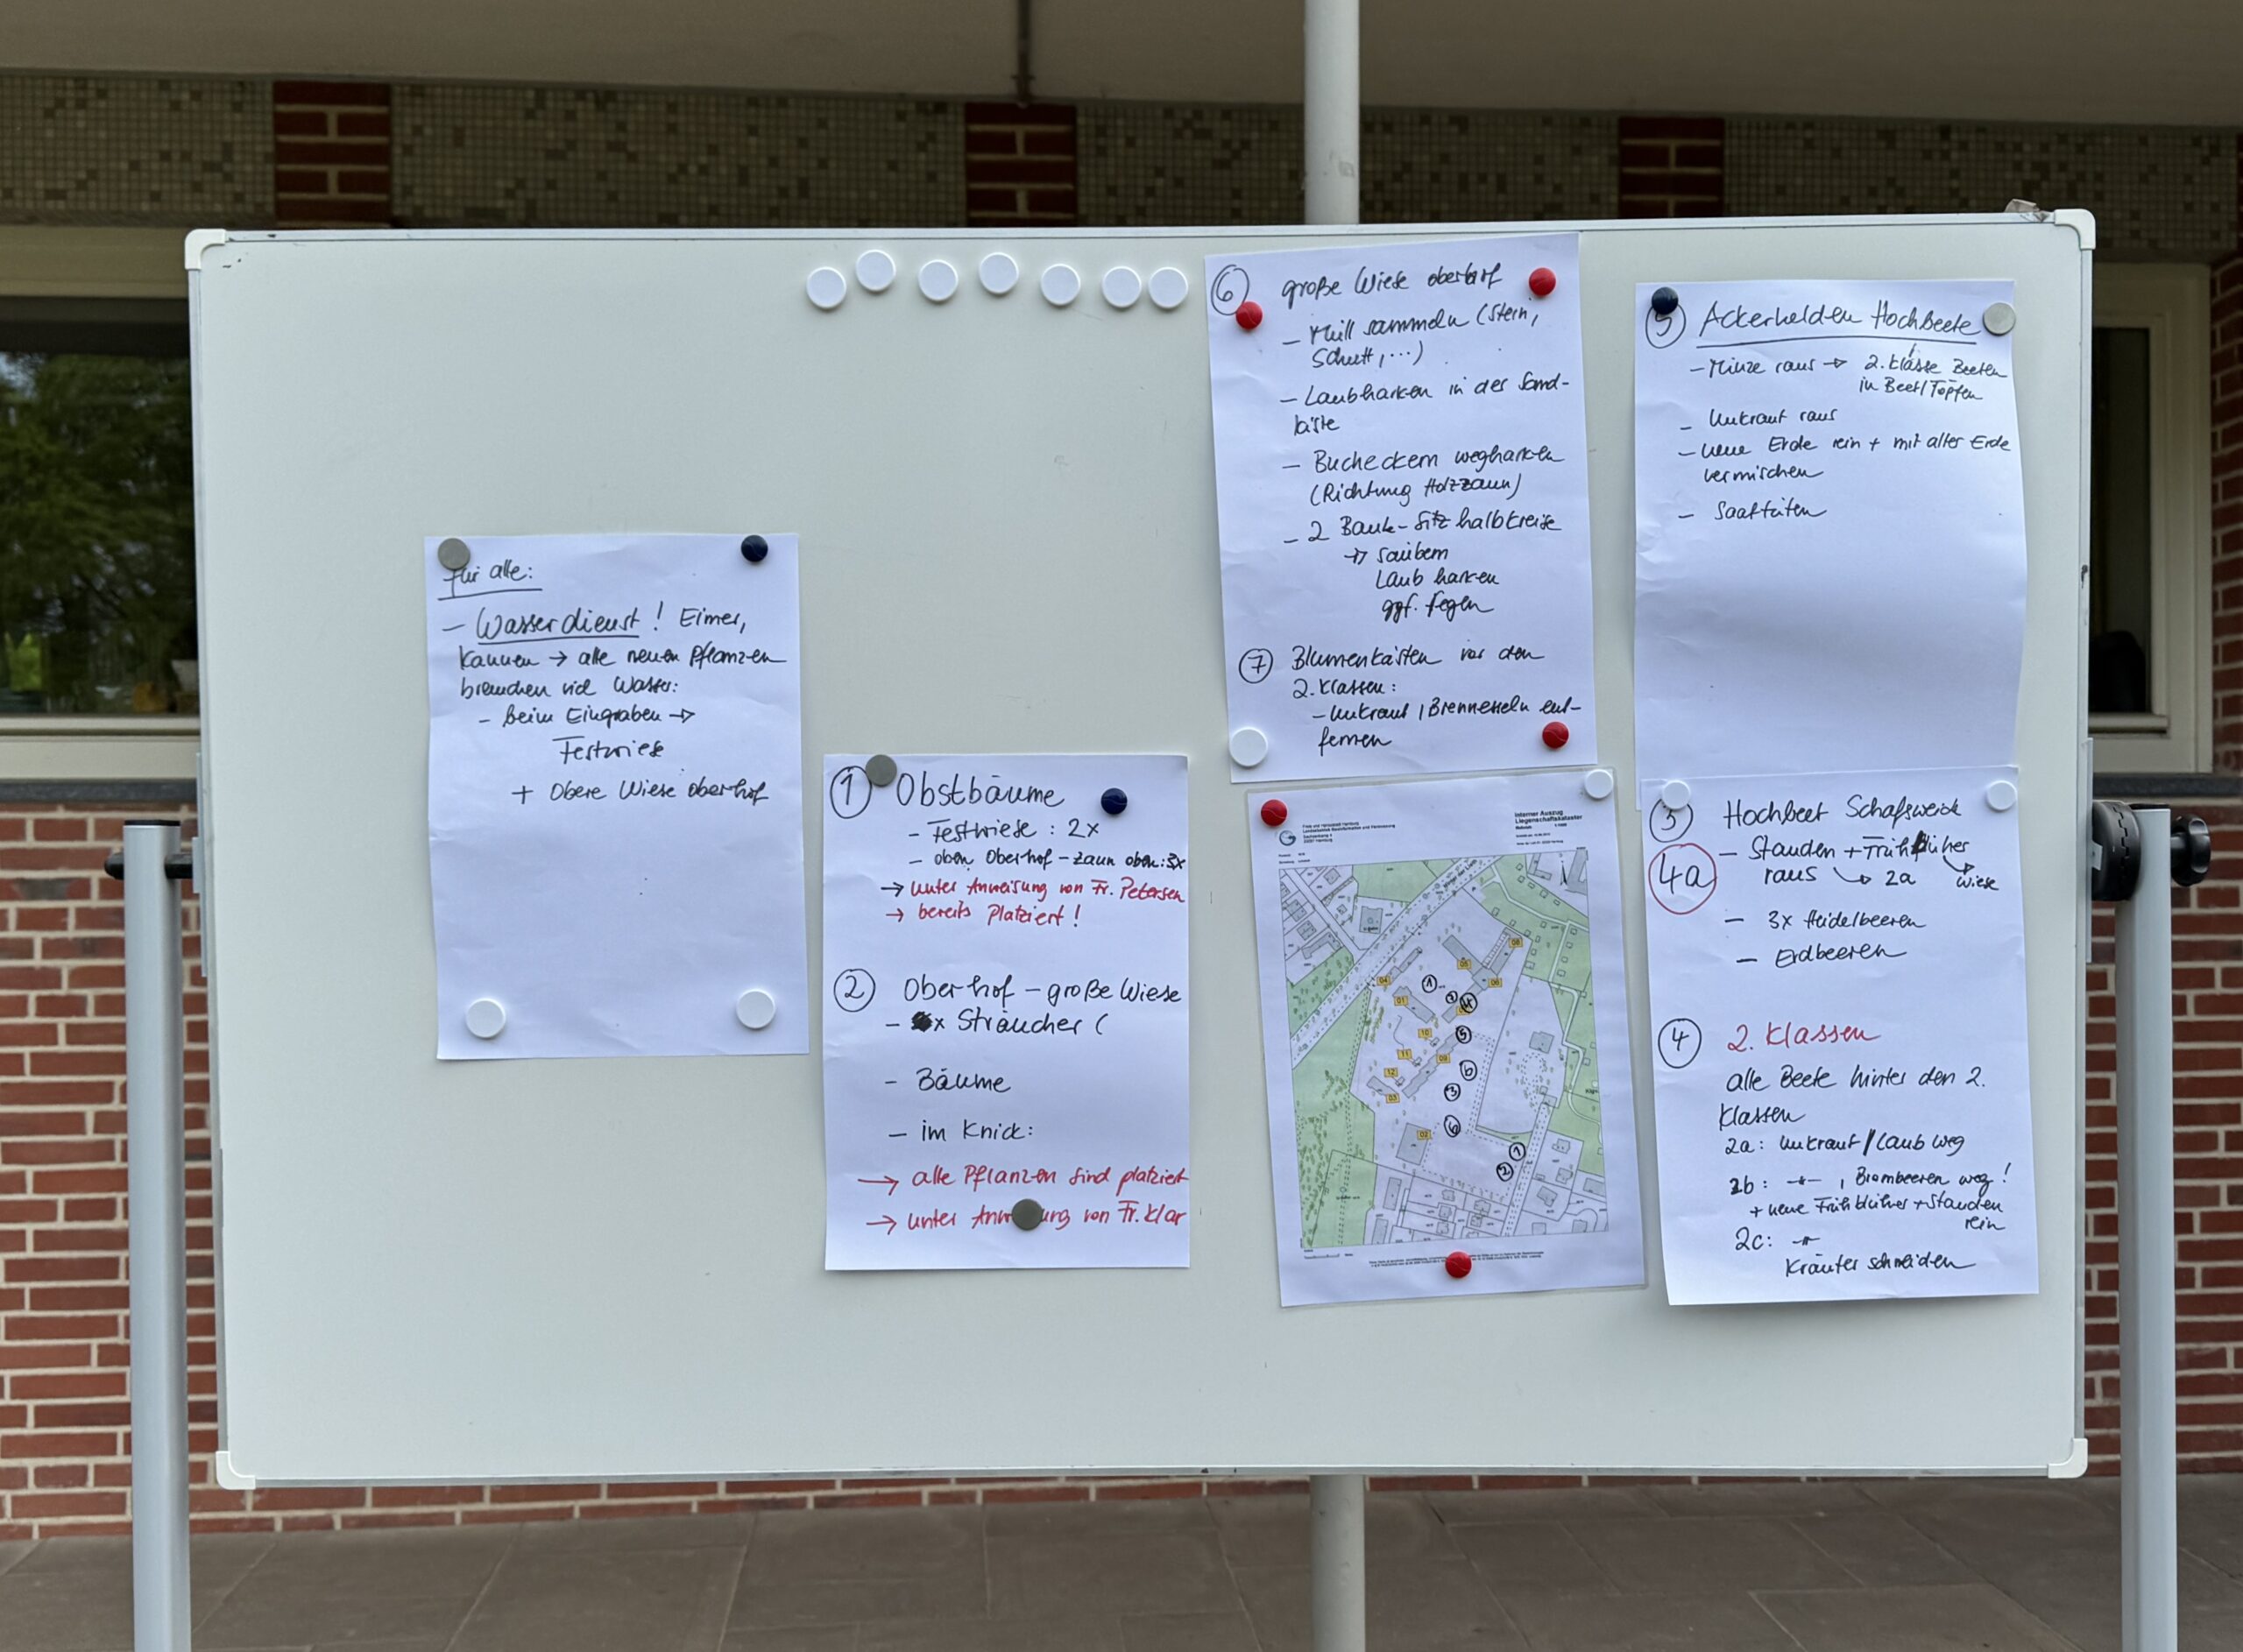 für alle:
– Wasserdienst! Eimer,
Kannen → alle neuen Pflanzen
brauchen viel Wasser:
- beim Eingraben →
Festwiese
+ Obere Wiese Oberhof
① Obstbäume
- Festwiese : 2x
- oben Oberhof – Zaun oben: 3x
→ unter Anweisung von Fr. Petersen
→ bereits platziert!
② Oberhof – große Wiese
- x Sträucher (
- Bäume
- im Knick:
→ alle Pflanzen sind platziert
→ unter Anw ung von Fr. Klar
⑥ große Wiese oberhof
– Müll sammeln (Stein,
Schutt, ...)
– Laubharken in der Sand-
kiste
– Bucheckern wegharken
(Richtung Holzzaun)
– 2 Bank-Sitzhalbkreise
→ säubern
Laub harken
ggf. fegen
⑦ Blumenkästen vor den
2. Klassen:
– Unkraut, Brennesseln ent-
fernen
Interner Auszug
Liegenschaftskataster
Freie und Hansestadt Hamburg
Landesbetrieb Geoinformation und Vermessung
08
05
06
04
01
10
11
09
12
03
02
①
③
④
⑤
⑥
③
⑥
①
②
⑤ Ackerhelden Hochbeete
– Minze raus → 2. Klasse Beeten
in Beet/Töpfen
– Unkraut raus
– neue Erde rein + mit alter Erde
vermischen
– Saattüten
③ Hochbeet Schafsweide
4a – Stauden + Frühblüher
raus → 2a Wiese
– 3x Heidelbeeren
– Erdbeeren
④ 2. Klassen
alle Beete hinter den 2.
Klassen
2a: Unkraut / Laub weg
2b: –"–, Brombeeren weg!
+ neue Frühblüher + Stauden
rein
2c: –"–
Kräuter schneiden